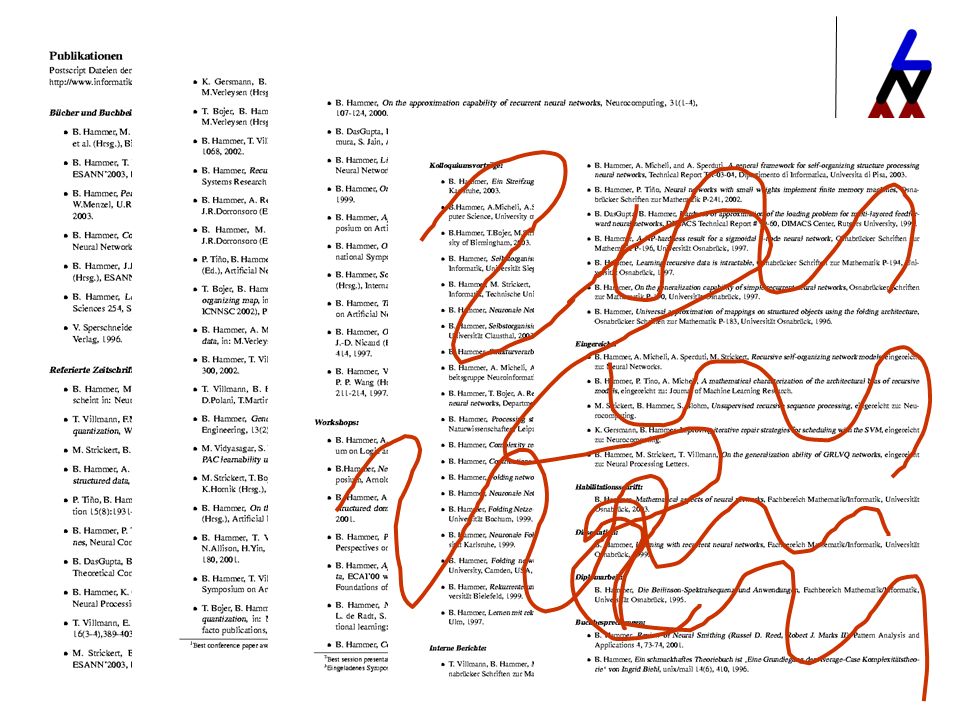 Publikationen
Postscript Dateien der
http://www.informatik
Bücher und Buchbei
• B. Hammer, M.
et al. (Hrsg.), Bi
• B. Hammer, T.
ESANN'2003, I
• B. Hammer, Pe
W.Menzel, U.R
2003.
• B. Hammer, Co
Neural Network
• B. Hammer, J.J.
(Hrsg.), ESANN
• B. Hammer, Le
Sciences 254, S
• V. Sperschneide
Verlag, 1996.
Referierte Zeitschrif
• B. Hammer, M
scheint in: Neu
• T. Villmann, E.
quantization, W
• M. Strickert, B.
• B. Hammer, A.
structured data,
• P. Tiño, B. Ham
tion 15(8):1931-
• B. Hammer, P.
nes, Neural Com
• B. DasGupta, B
Theoretical Com
• B. Hammer, K.
Neural Processi
• T. Villmann, E.
16(3-4),389-403
• M. Strickert, B
ESANN'2003, I
• K. Gersmann, B.
M.Verleysen (Hrsg
• T. Bojer, B. Ham
M.Verleysen (Hrsg
• B. Hammer, T. Vil
1068, 2002.
• B. Hammer, Recu
Systems Research
• B. Hammer, A. Re
J.R.Dorronsoro (E
• B. Hammer, M.
J.R.Dorronsoro (E
• P. Tiño, B. Hamme
(Ed.), Artificial Ne
• T. Bojer, B. Hamm
organizing map, in
ICNNSC 2002), P
• B. Hammer, A. M
data, in: M.Verley
• B. Hammer, T. Vil
300, 2002.
• T. Villmann, B. H
D.Polani, T.Martin
• B. Hammer, Gene
Engineering, 13(2)
• M. Vidyasagar, S.
PAC learnability u
• M. Strickert, T. Boj
K.Hornik (Hrsg.),
• B. Hammer, On th
(Hrsg.), Artificial I
• B. Hammer, T. V
N.Allison, H.Yin,
180, 2001.
• B. Hammer, T. Vil
Symposium on Ar
• T. Bojer, B. Hamm
quantization, in: M
facto publications,
1Best conference paper aw
• B. Hammer, On the approximation capability of recurrent neural networks, Neurocomputing, 31(1-4),
107-124, 2000.
• B. DasGupta, I
mura, S. Jain, A
• B. Hammer, Li
Neural Network
• B. Hammer, On
1999.
• B. Hammer, A
posium on Arti
• B. Hammer, O
national Sympo
• B. Hammer, So
(Hrsg.), Interna
• B. Hammer, Th
on Artificial Ne
• B. Hammer, O
J.-D. Nicaud (E
414, 1997.
• B. Hammer, V
P. P. Wang (He
211-214, 1997.
Workshops:
• B. Hammer, A.
um on Logic a
• B.Hammer, Ne
posium, Arnol
• B. Hammer, A
structured dom
2001.
• B. Hammer, P
Perspectives o
• B. Hammer, A
ta, ECAI'00 w
Foundations of
• B. Hammer, N
L. de Radt, S.
tional learning:
• B. Hammer, Co
2Best session presenta
3Eingeladenes Sympos
Kolloquiumsvorträge:
• B. Hammer, Ein Streifzug
Karlsruhe, 2003.
• B.Hammer, A.Micheli, A.S
puter Science, University o
• B. Hammer, T.Bojer, M.Str
sity of Birmingham, 2003.
• B. Hammer, Selbstorganis
Informatik, Universität Sieg
• B. Hammer, M. Strickert,
Informatik, Technische Uni
• B. Hammer, Neuronale Net
• B. Hammer, Selbstorganisi
Universität Clausthal, 200
• B. Hammer, Strukturverarb
• B. Hammer, A. Micheli, A
beitsgruppe Neuroinformati
• T. Bojer, B. Hammer, A. Re
neural networks, Departme
• B. Hammer, Processing st
Naturwissenschaften, Leips
• B. Hammer, Complexity re
• B. Hammer,
• B. Hammer, Folding netwo
• B. Hammer, Neuronale Net
• B. Hammer, Folding Netze
Universität Bochum, 1999.
• B. Hammer, Neuronale Fol
sität Karlsruhe, 1999.
• B. Hammer, Folding netw
University, Camden, USA,
• B. Hammer, Rekurrente
versität Bielefeld, 1999.
• B. Hammer, Lernen mit rek
Ulm, 1997.
Interne Berichte:
• T. Villmann, B. Hammer, M
nabrücker Schriften zur Ma
• B. Hammer, A. Micheli, and A. Sperduti, A general framework for self-organizing structure processing
neural networks, Technical Report TR-03-04, Dipartimento di Informatica, Universita di Pisa, 2003.
• B. Hammer, P. Tiño, Neural networks with small weights implement finite memory machines, Osna-
brücker Schriften zur Mathematik P-241, 2002.
• B. DasGupta, B. Hammer, Hardness of approximation of the loading problem for multi-layered feedfor-
ward neural networks, DIMACS Technical Report # -60, DIMACS Center, Rutgers University, 199
• B. Hammer, A NP-hardness result for a sigmoidal -node neural network, Osnabrücker Schriften zur
Mathematik P-196, Universität Osnabrück, 1997.
• B. Hammer, Learning recursive data is intractable, Osnabrücker Schriften zur Mathematik P-194, Uni-
versität Osnabrück, 1997.
• B. Hammer, On the generalization capability of simple recurrent neural networks, Osnabrücker Schriften
zur Mathematik P- , Universität Osnabrück, 1997.
• B. Hammer, Universal approximation of mappings on structured objects using the folding architecture,
Osnabrücker Schriften zur Mathematik P-183, Universität Osnabrück, 1996.
Eingereicht:
• B. Hammer, A. Micheli, A. Sperduti, M. Strickert, Recursive self-organizing network models, eingereicht
zu: Neural Networks.
• B. Hammer, P. Tino, A. Micheli, A mathematical characterization of the architectural bias of recursive
models, eingereicht zu: Journal of Machine Learning Research.
• M. Strickert, B. Hammer, S. Blohm, Unsupervised recursive sequence processing, eingereicht zu: Neu-
rocomputing.
• K. Gersmann, B. Hammer, Improving iterative repair strategies for scheduling with the SVM, eingereicht
zu: Neurocomputing.
• B. Hammer, M. Strickert, T. Villmann, On the generalization ability of GRLVQ networks, eingereicht
zu: Neural Processing Letters.
Habilitationsschrift:
B. Hammer, Mathematical aspects of neural networks, Fachbereich Mathematik/Informatik, Universität
Osnabrück, 2003.
Dissertation:
B. Hammer, Learning with recurrent neural networks, Fachbereich Mathematik/Informatik, Universität
Osnabrück, 1999.
Diplomarbeit:
B. Hammer, Die Beilinson-Spektralsequenz und Anwendungen, Fachbereich Mathematik/Informatik,
Universität Osnabrück, 1995.
Buchbesprechungen:
• B. Hammer, Review of Neural Smithing (Russel D. Reed, Robert J. Marks II), Pattern Analysis and
Applications 4, 73-74, 2001.
• B. Hammer, Ein schmackhaftes Theoriebuch ist „Eine Grundlegung der Average-Case Komplexitätstheo-
rie“ von Ingrid Biehl, unix/mail 14(6), 410, 1996.